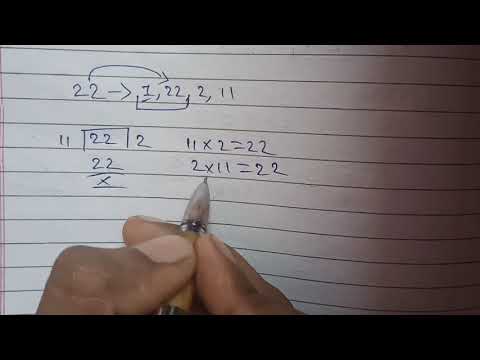 22 → 1, 22, 2, 11
11 22 2 11 × 2 = 22
22 2 × 11 = 22
×